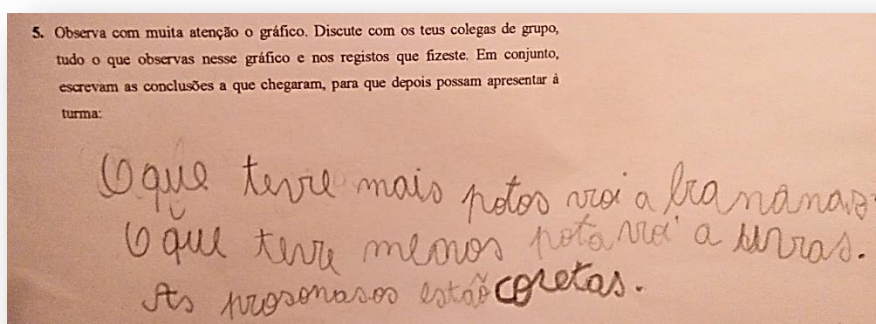 5. Observa com muita atenção o gráfico. Discute com os teus colegas de grupo,
tudo o que observas nesse gráfico e nos registos que fizeste. Em conjunto,
escrevam as conclusões a que chegaram, para que depois possam apresentar à
turma:
O que teve mais potos voi a bananas
O que teve menos pota voi a uvras.
As estão coretas.